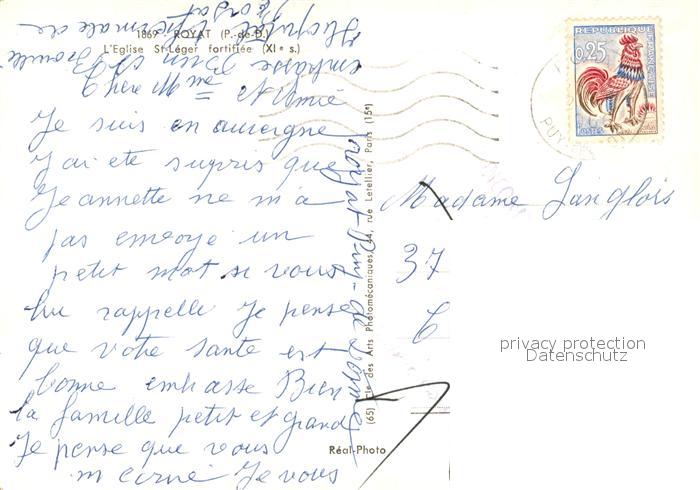 1869 - ROYAT (P.-de-D.)
L'Eglise St-Léger fortifiée (XIe s.)
Chère Mme
Je suis en auvergne
J'ai ete supris que
Jeannette ne m'a
pas envoye un
petit mot si vous
lui rappelle Je pense
que votre sante est
bonne embrasse Bien
la famille petit et grand
Je pense que vous
m Je vous
embrasse Bien
Hopital Thermale de
royat Puy-de Dome
(65) Cie des Arts Photomécaniques, 44, rue Letellier, Paris (15e)
Réal-Photo
REPUBLIQUE FRANÇAISE
0,25
POSTES
PUY
Madame Langlois
37
6
privacy protection
Datenschutz